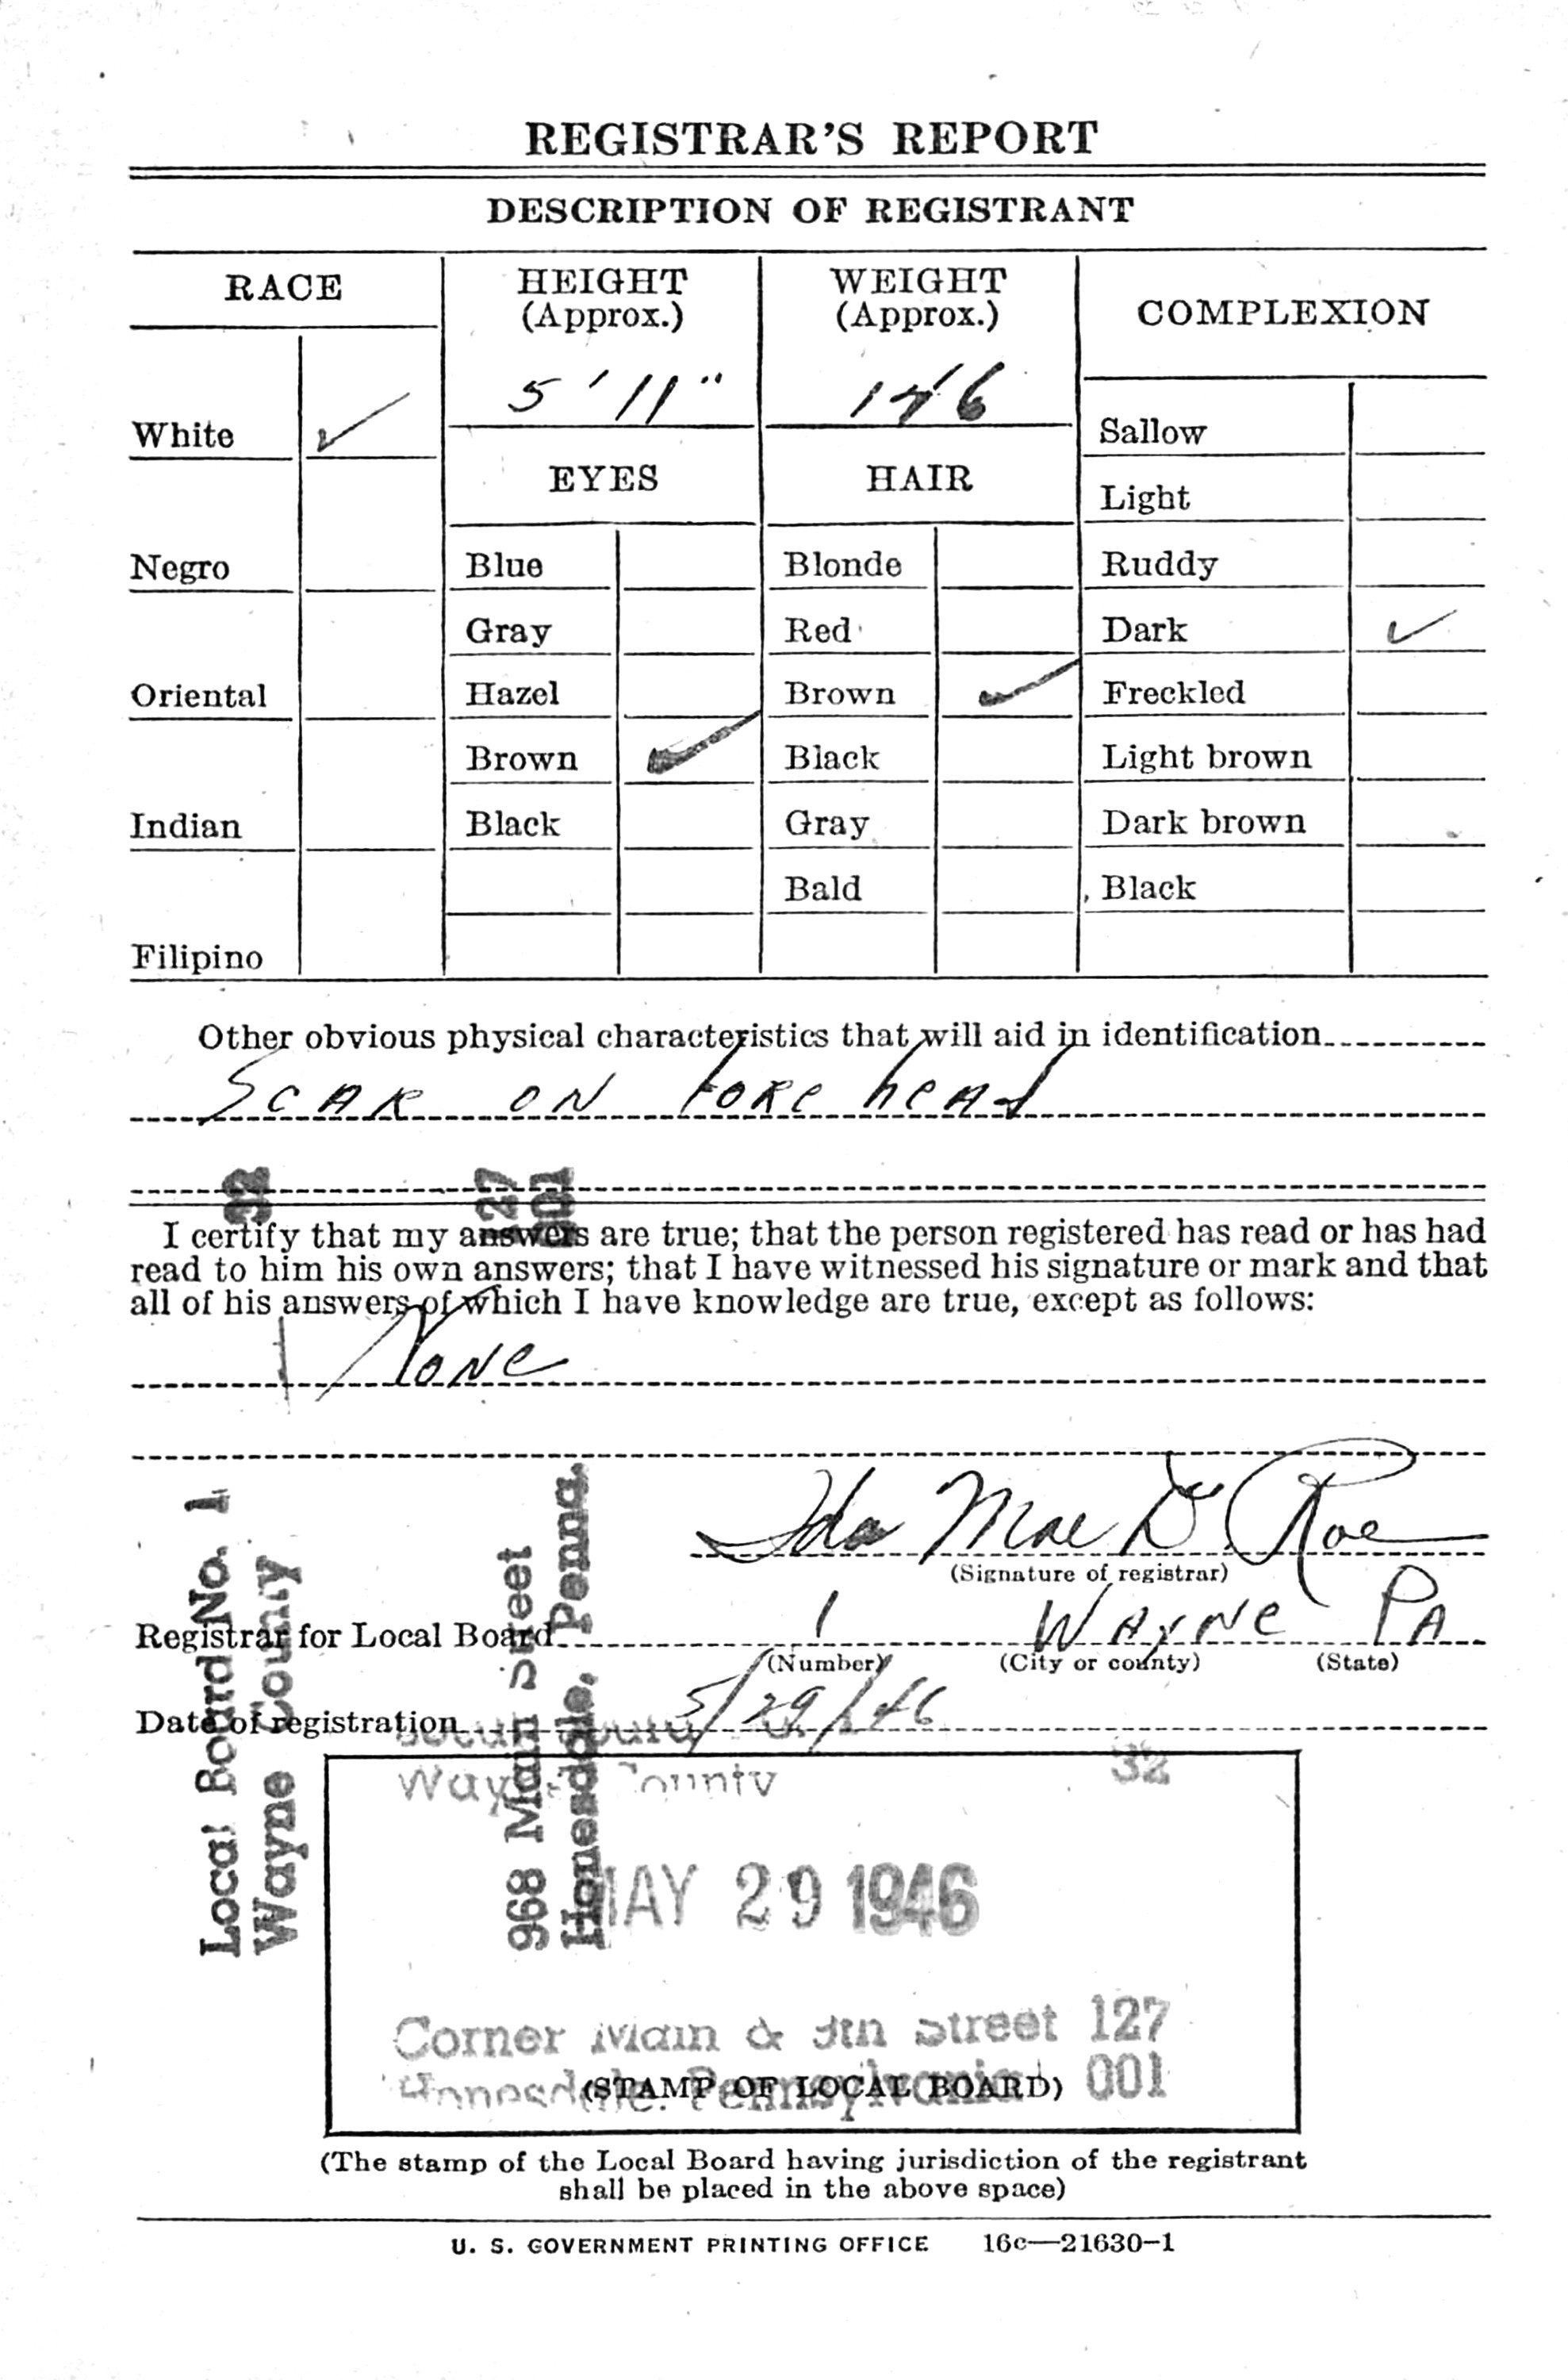 REGISTRAR'S REPORT
DESCRIPTION OF REGISTRANT
RACE
HEIGHT
(Approx.)
WEIGHT
(Approx.)
COMPLEXION
5' 11"
146
White ✓
Sallow
EYES
HAIR
Light
Negro
Blue
Blonde
Ruddy
Gray
Red
Dark ✓
Oriental
Hazel
Brown ✓
Freckled
Brown ✓
Black
Light brown
Indian
Black
Gray
Dark brown
Bald
Black
Filipino
Other obvious physical characteristics that will aid in identification
SCAR ON FOREHEAD
32
127
001
I certify that my answers are true; that the person registered has read or has had
read to him his own answers; that I have witnessed his signature or mark and that
all of his answers of which I have knowledge are true, except as follows:
None
Ida Mae D Roe
(Signature of registrar)
Registrar for Local Board 1 WAYNE PA
(Number) (City or county) (State)
Date of registration 5/29/46
Local Board No. 1
Wayne County
968 Main Street
Honesdale, Penna.
Wayne County
32
MAY 29 1946
Corner Main & 9th Street 127
Honesdale, Pennsylvania 001
(STAMP OF LOCAL BOARD)
(The stamp of the Local Board having jurisdiction of the registrant
shall be placed in the above space)
U. S. GOVERNMENT PRINTING OFFICE 16c—21630-1